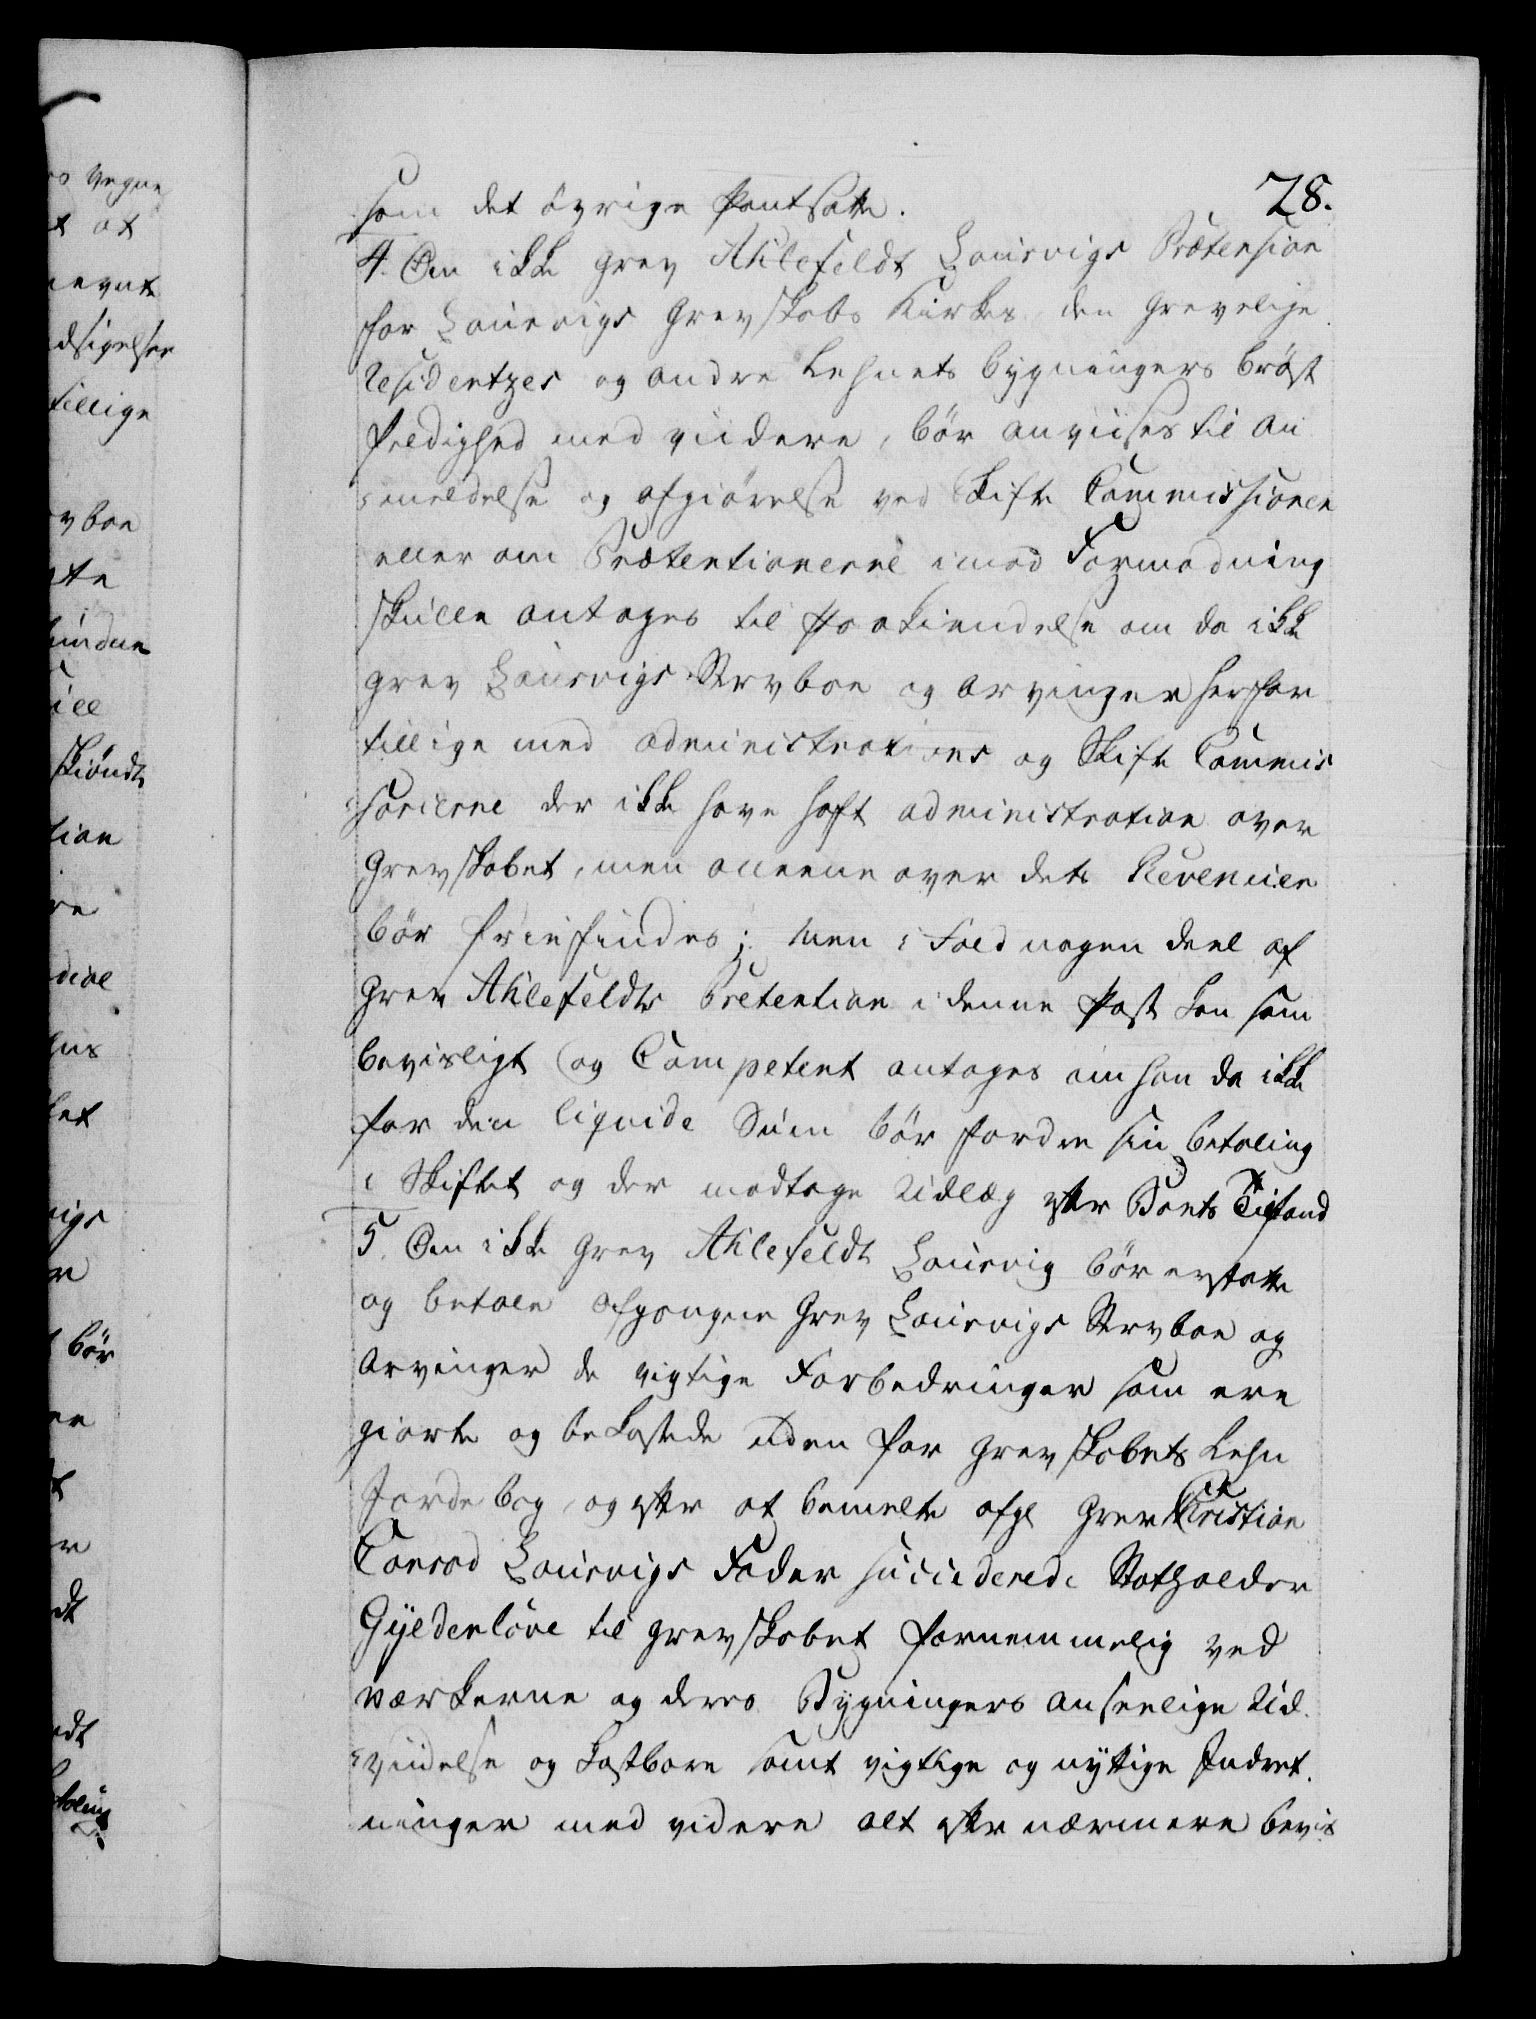 28.
som det øvrige Pantsatte.
4. Om ikke Grev Ahlefeldt Laurvigs Prætension
for Laurvigs Grevskabs Kirkes, den Grevelige
Residentzes og andre Lehnets bygningers brøst
fældighed med viidere, bör anviises til an
meldelse og afgiörelse ved Skifte Commissionen
eller om Prætentionerne imod Formodning
skulle antages til Paakiendelse om da ikke
Grev Laurvigs Stervboe og Arvinger herfor
tillige med administrations og Skifte Commis
sarierne der ikke have haft administration over
Grevskabet, men alleene over dets Revenuer
bör friefindes; Men i Fald nogen deel af
Grev Ahlefeldts Pretention i denne Post kan som
bevisligt og Competent antages om han da ikke
for den liqvide Sum bör fordre sin betaling
i Skiftet og der modtage Udlæg efter Boets Tilstand
5. Om ikke Grev Ahlefeldt Laurvig bör erstatte
og betale afgangne Grev Laurvigs Stervboe og
Arvinger de vigtige Forbedringer som ere
giorte og bekostede uden for Grevskabets Lehns
Jordebog, og efter at bemelte afg. Grev Christian
Conrad Laurvigs Fader succederede Statholder
Gyldenlöve til Grevskabet fornemmelig ved
Værkerne og deres Bygningers anseelige Ud
viidelse og kostbare samt vigtige og nyttige Indret
ninger med videre alt efter nærmere bevis